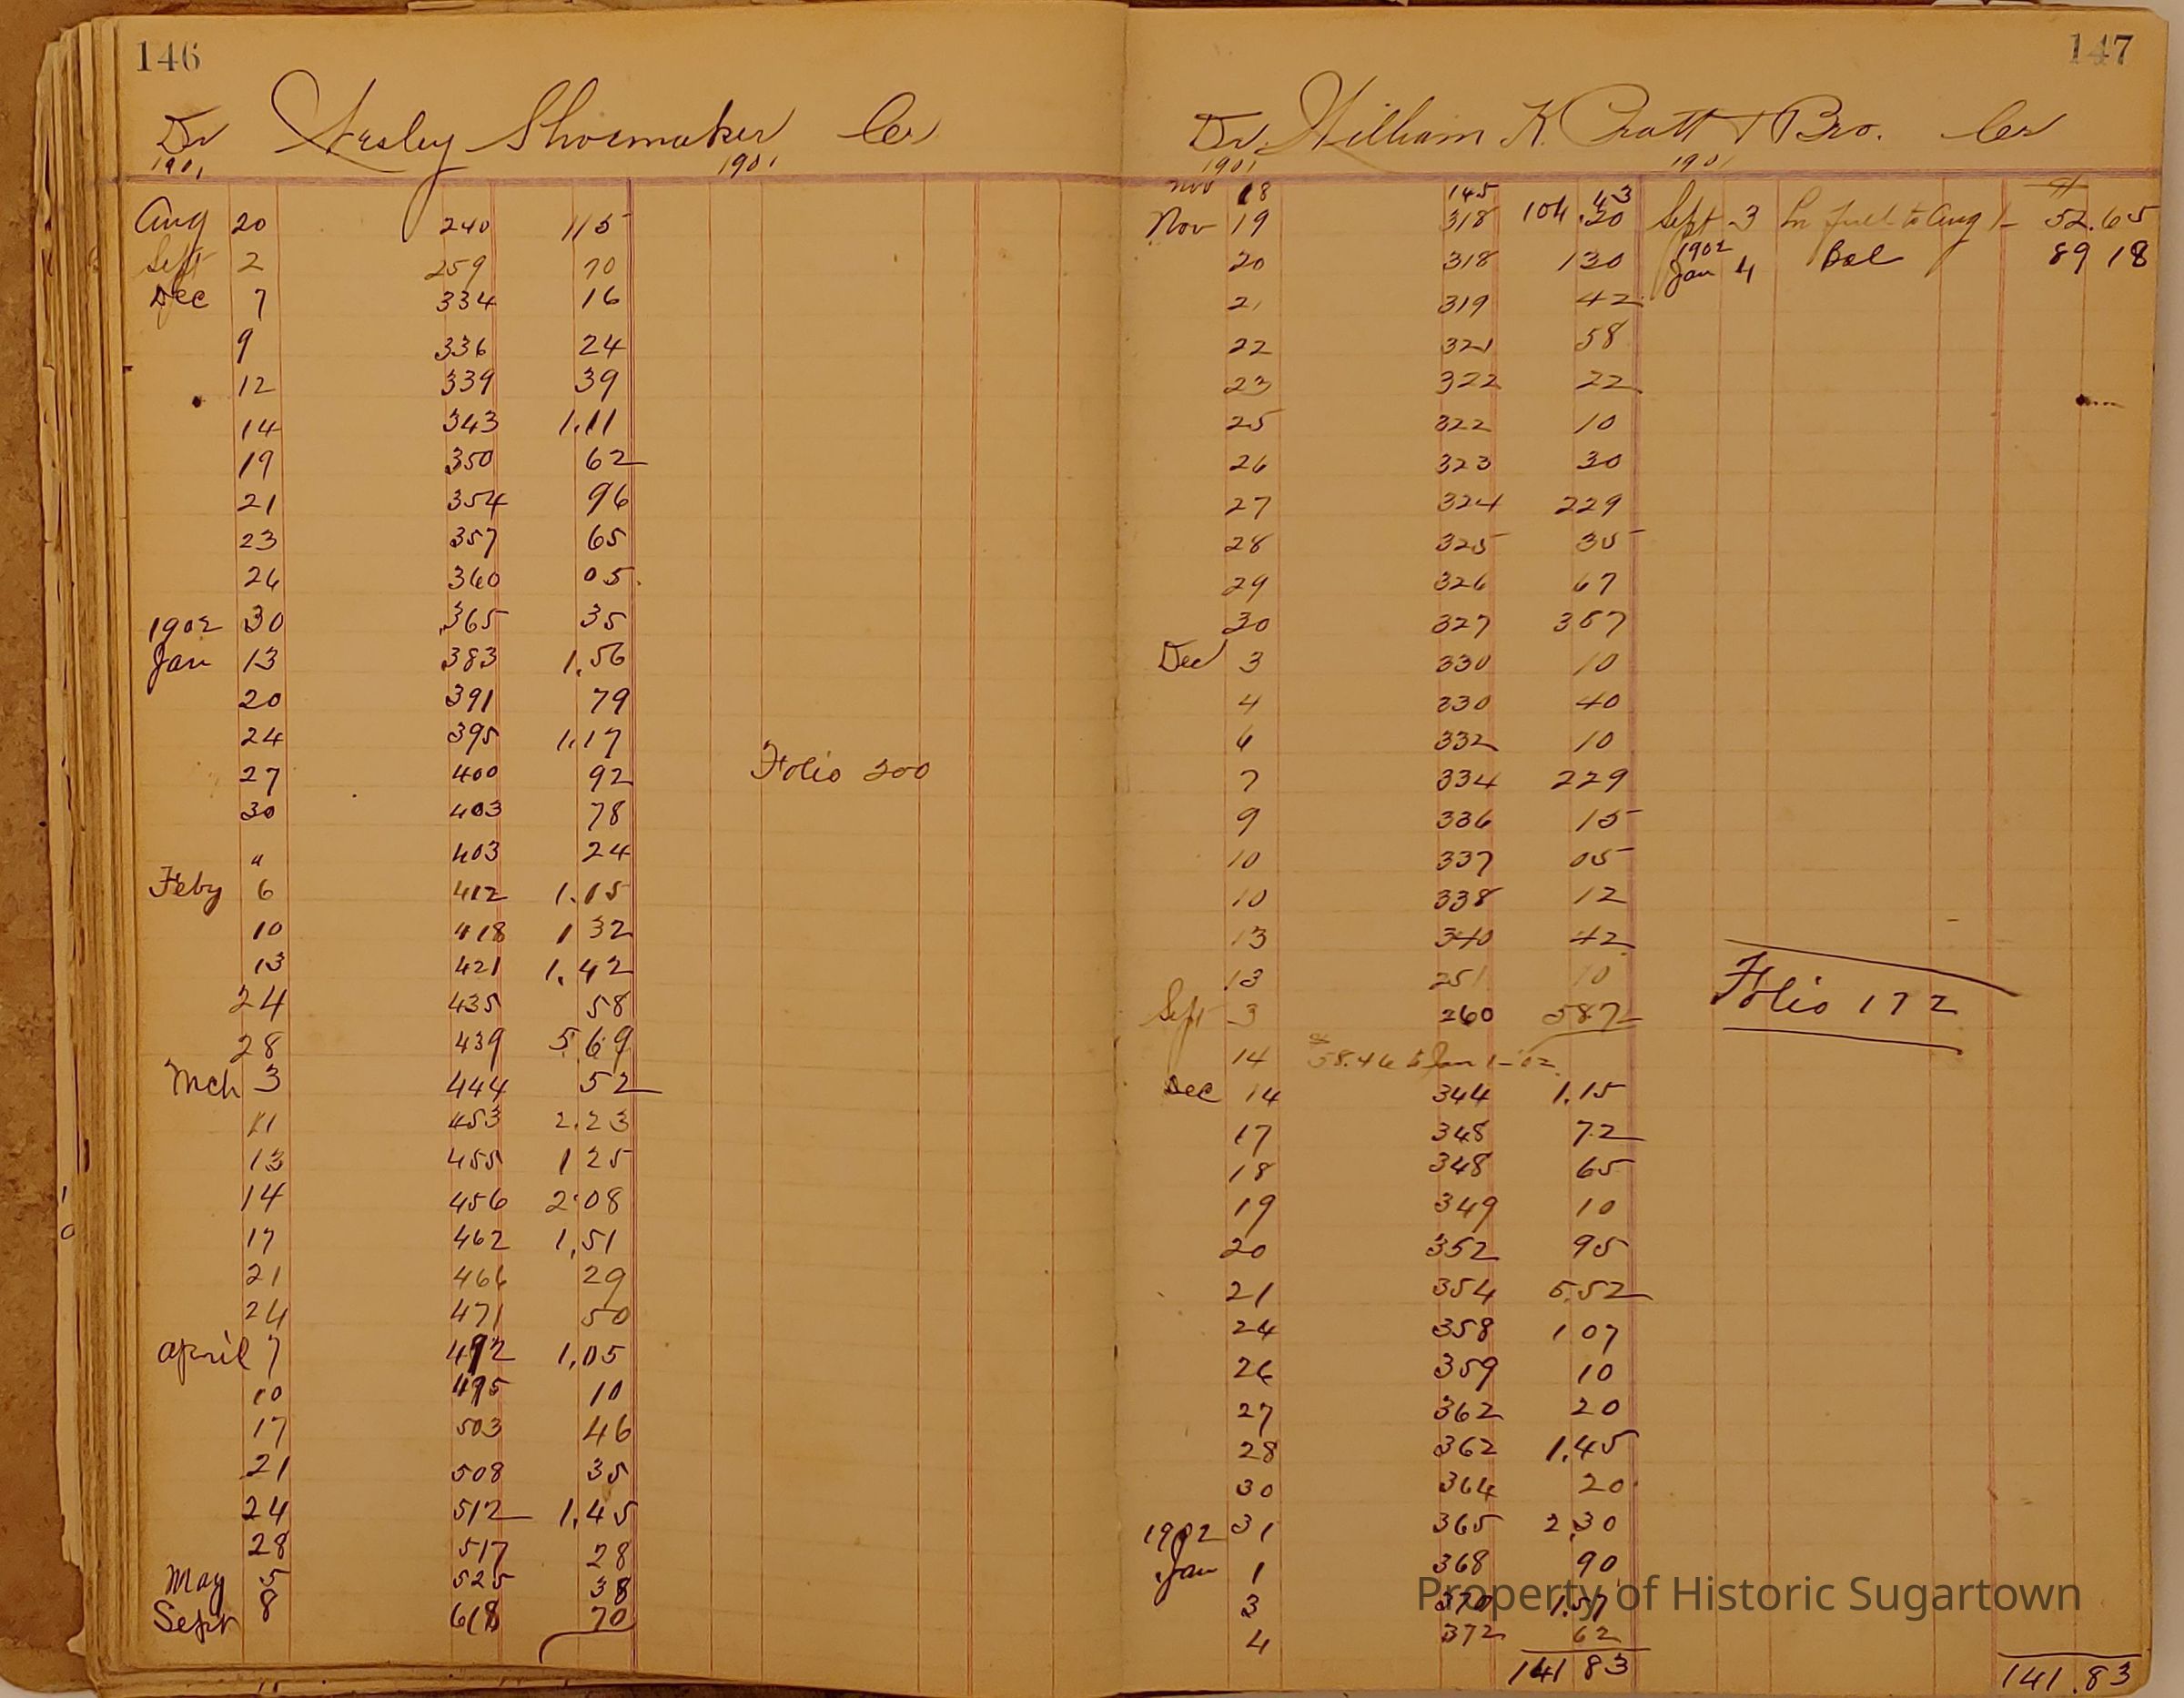 146
Dr Wesley Shoemaker Cr
1901 1901
Aug 20 240 115
Sept 2 259 70
Dec 7 334 16
9 336 24
12 339 39
14 343 1.11
19 350 62
21 354 96
23 357 65
26 360 05
1902 30 365 35
Jan 13 383 1.56
20 391 79
24 395 1.17
27 400 92 Folio 200
30 403 78
" 403 24
Feby 6 412 1.15
10 418 1 32
13 421 1.42
24 435 58
28 439 5 69
Mch 3 444 52
11 453 2.23
13 455 1 25
14 456 2.08
17 462 1,51
21 466 29
24 471 50
April 7 492 1,05
10 495 10
17 503 46
21 508 35
24 512 1,45
28 517 28
May 5 525 38
Sept 8 618 70
147
Dr. William K. Pratt & Bro. Cr
1901 1901
Nov 18 145 43
Nov 19 318 104.20 Sept 3 In full to Aug 1 - 52.65
20 318 130 1902 Jan 4 Bal 89 18
21 319 42
22 321 58
23 322 22
25 322 10
26 323 30
27 324 229
28 325 35
29 326 67
30 327 367
Dec 3 330 10
4 330 40
6 332 10
7 334 229
9 336 15
10 337 05
10 338 12
13 340 42
13 251 10
Sept 3 260 587 Folio 172
14 58.46 to Jan 1-02
Dec 14 344 1.15
17 348 72
18 348 65
19 349 10
20 352 95
21 354 5.52
24 358 1 07
26 359 10
27 362 20
28 362 1.45
30 364 20
1902 31 365 2.30
Jan 1 368 90
3 370 1.57
4 372 62
141 83 141.83
Property of Historic Sugartown